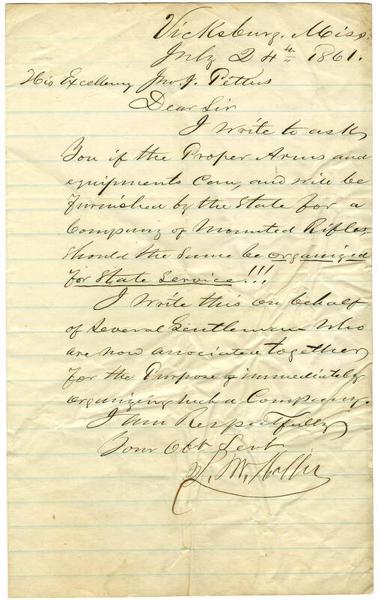 Vicksburg, Miss.
July 24th 1861.
His Excellency Jno. J. Pettus
Dear Sir
I write to ask
You if the Proper Arms and
equipments Can, and will be
furnished by the State for a
Company of Mounted Rifles,
should the Same be organized
for State Service!!!
I write this on behalf
of Several Gentlemen who
are now associated together
for the Purpose of immediately
organizing such a Company.
I am Respectfully
Your Obt Servt